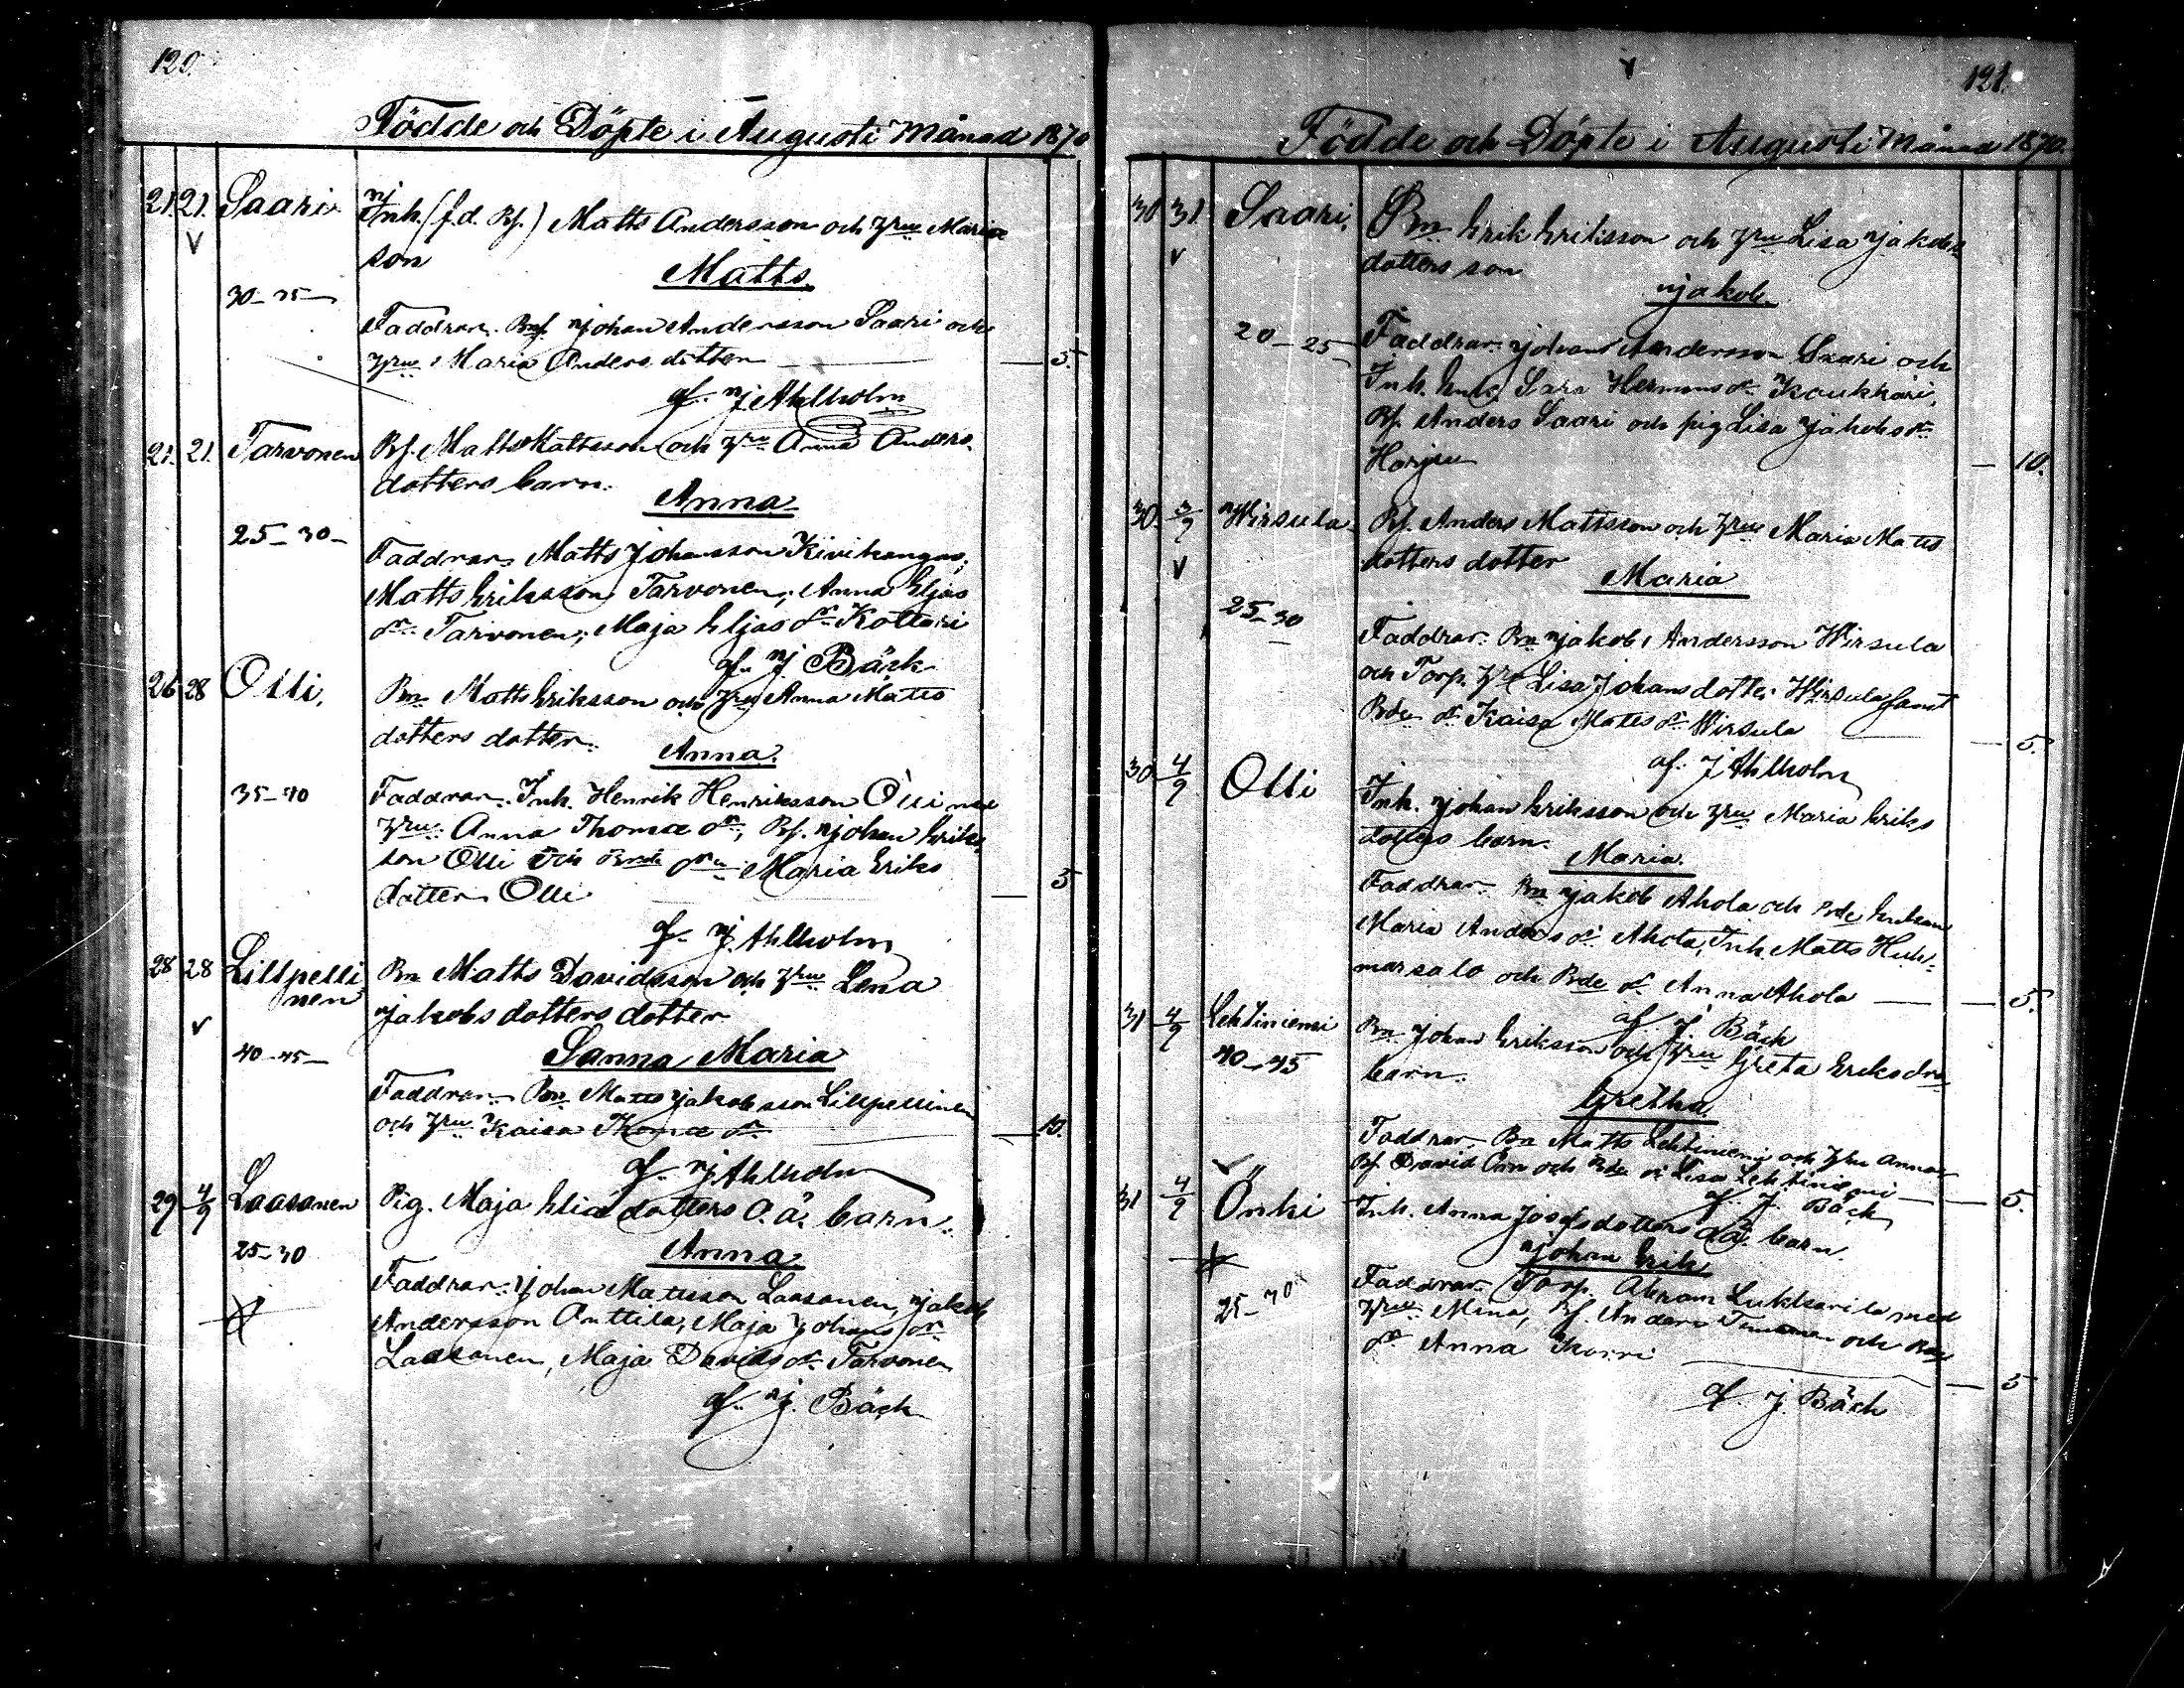 120.
Födde och Döpte i Augusti Månad 1870
21. 21. Saari Inh. (f.d. Bf.) Matts Andersson och hru Maria
son
Matts.
30–35
Faddrar. Johan Andersson Saari och
hru Maria Andersdotter — 5.
af J Ahlholm
21. 21. Tarvonen Bf. Matts Mattsson och hru Anna Anders
dotters barn.
Anna
25–30
Faddrar. Matts Johansson Kivikangas,
Matts Eriksson Tarvonen, Anna Elias
dr Tarvonen, Maja Elias dr Kottari
af J Bäck
26 28 Olli. Bn Matts Eriksson och hru Anna Matts
dotters dotter.
Anna.
35–40
Faddrar. Inh. Henrik Henriksson Olli med
hru Anna Thomæ dr, Bf. Johan Eriks
son Olli och Maria Eriks
dotter Olli — 5
af J. Ahlholm
28 28 Lillpelli
nen
Bn Matts Davidsson och hru Lena
Jakobsdotters dotter
Sanna Maria
40–45
Faddrar. Bn Matts Jakobsson Lillpellinen
och hru Kaisa Thomæ dr — 10.
af J Ahlholm
29 4/9 Laasanen Pig. Maja Elia dotters o.ä. barn.
Anna
25–30
Faddrar. Johan Mattsson Laasanen, Jakob
Andersson Anttila, Maja Johans dr
Laasanen, Maja Davids dr Tarvonen
af J. Bäck
121.
Födde och Döpte i Augusti Månad 1870.
30 31 Saari, Bn Erik Eriksson och hru Lisa Jakobs
dotters son
Jakob.
20–25
Faddrar. Johan Andersson Saari och
Inh. Enk. Sara Hermans dr Koukkari,
Bf. Anders Saari och pig Lisa Jakobs dr
Harju — 10.
30. 3/9 Wirsula Bf. Anders Mattsson och hru Maria Matts
dotters dotter
Maria
25–30
Faddrar. Bn Jakob Andersson Wirsula
och Torp. hru Lisa Johansdotter Wirsula samt
Bde dr Kaisa Matts dr Wirsula — 5.
af. J Ahlholm
30 4/9 Olli Inh. Johan Eriksson och hru Maria Eriks
dotters barn.
Maria.
Faddrar. Bn Jakob Ahola och Bde Enkan
Maria Anders dr Ahola, Inh Matts Huh-
marsalo och Bde dr Anna Ahola — 5.
af J Bäck
31 4/9 Lehtiniemi Bn Johan Eriksson och hru Greta Eriksdrs
40–45
barn.
Gretha
Faddrar. Bn Matts Lehtiniemi och hru Anna
Bf. David Orn och Bde dr Lisa Lehtiniemi — 5.
af J. Bäck
31 4/9 Önki Inh. Anna Josefsdotters o.ä. barn.
Johan Erik
25–30
Faddrar. Torp. Abram Lukkarila med
hru Mina, Bf. Anders och
dr Anna Korri — 5
af J. Bäck